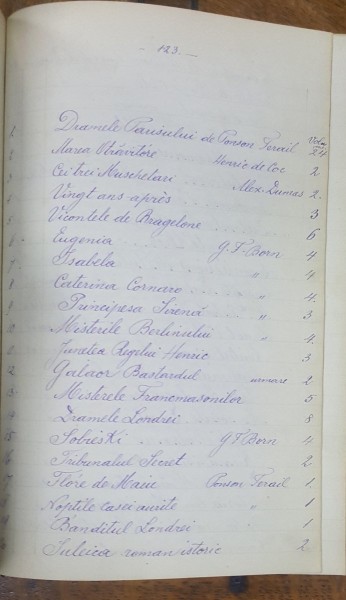 - 123. -
Volu
1 Dramele Parisului de Ponson Terail
2 Marea Otrăvitóre . . . Henric de Coc 2
3 Cei trei Muschetari . . . Alex. Dumas 2
4 Vingt ans après . . . 3
5 Vicontele de Bragelone . . . 6
6 Eugenia . . . G. F. Born 4
7 Isabela . . . " 4
8 Caterina Cornaro . . . " 4
9 Principesa Sirenă . . . " 3
10 Misterile Berlinului . . . " 4
Junetea Regelui Henric 3
2 Galaor Bastardul urmare 2
3 Misterele Francmasonilor 5
4 Dramele Londrei . . . 8
5 Sobieski . . . G F Born 4
6 Tribunalul Secret . . . 2
7 Flóre de Maiu Ponson Terail 1
Noptile Casei aurite " 1
Banditul Londrei 1
Suleica roman istoric 2